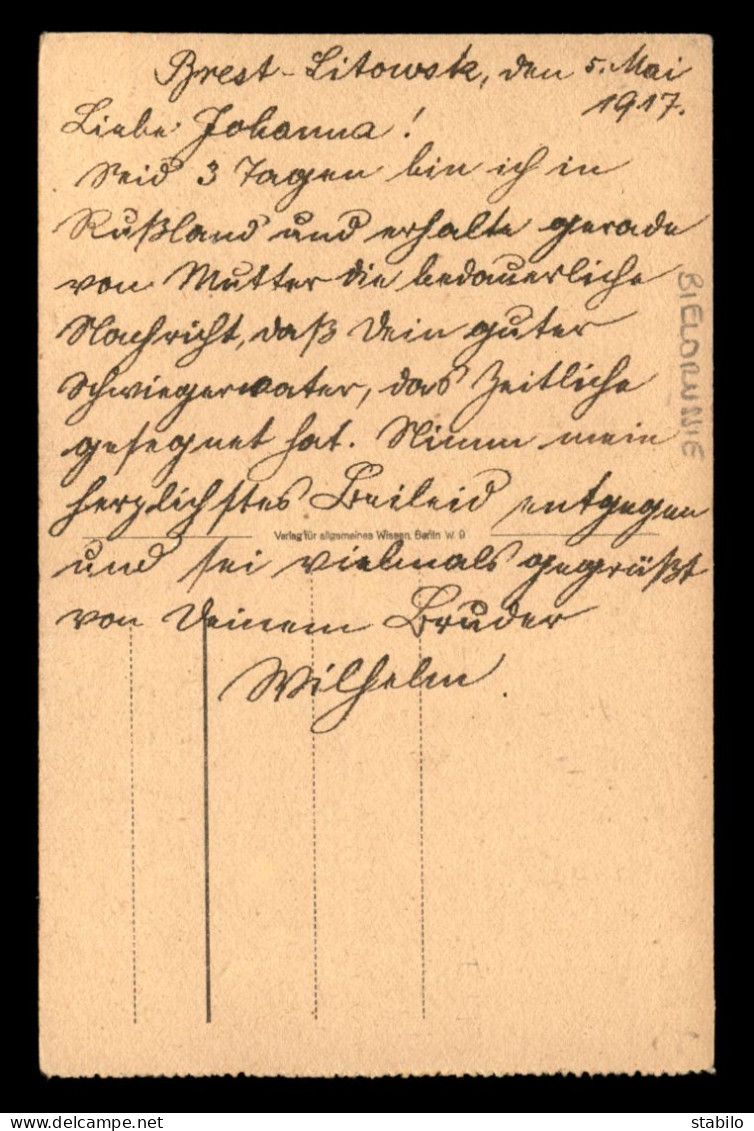 Brest-Litowsk, den 5. Mai
1917.
Liebe Johanna!
Seid 3 Tagen bin ich in
Rußland und erhalte gerade
von Mutter die bedauerliche
Nachricht, daß Dein guter
Schwiegervater, das Zeitliche
gesegnet hat. Nimm mein
herzlichstes Beileid entgegen
Verlag für allgemeines Wissen, Berlin W. 9
und sei vielmals gegrüßt
von Deinem Bruder
Wilhelm.
BIELORUSSIE
delcampe.net
stabilo